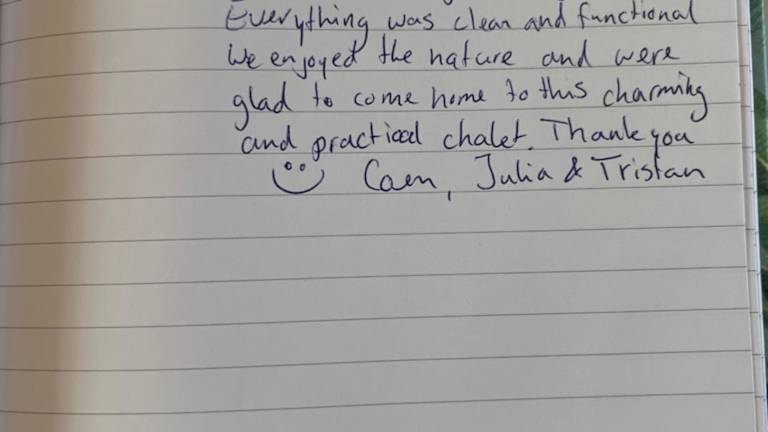 Everything was clean and functional
We enjoyed the nature and were
glad to come home to this charming
and practical chalet. Thank you
Coen, Julia & Tristan